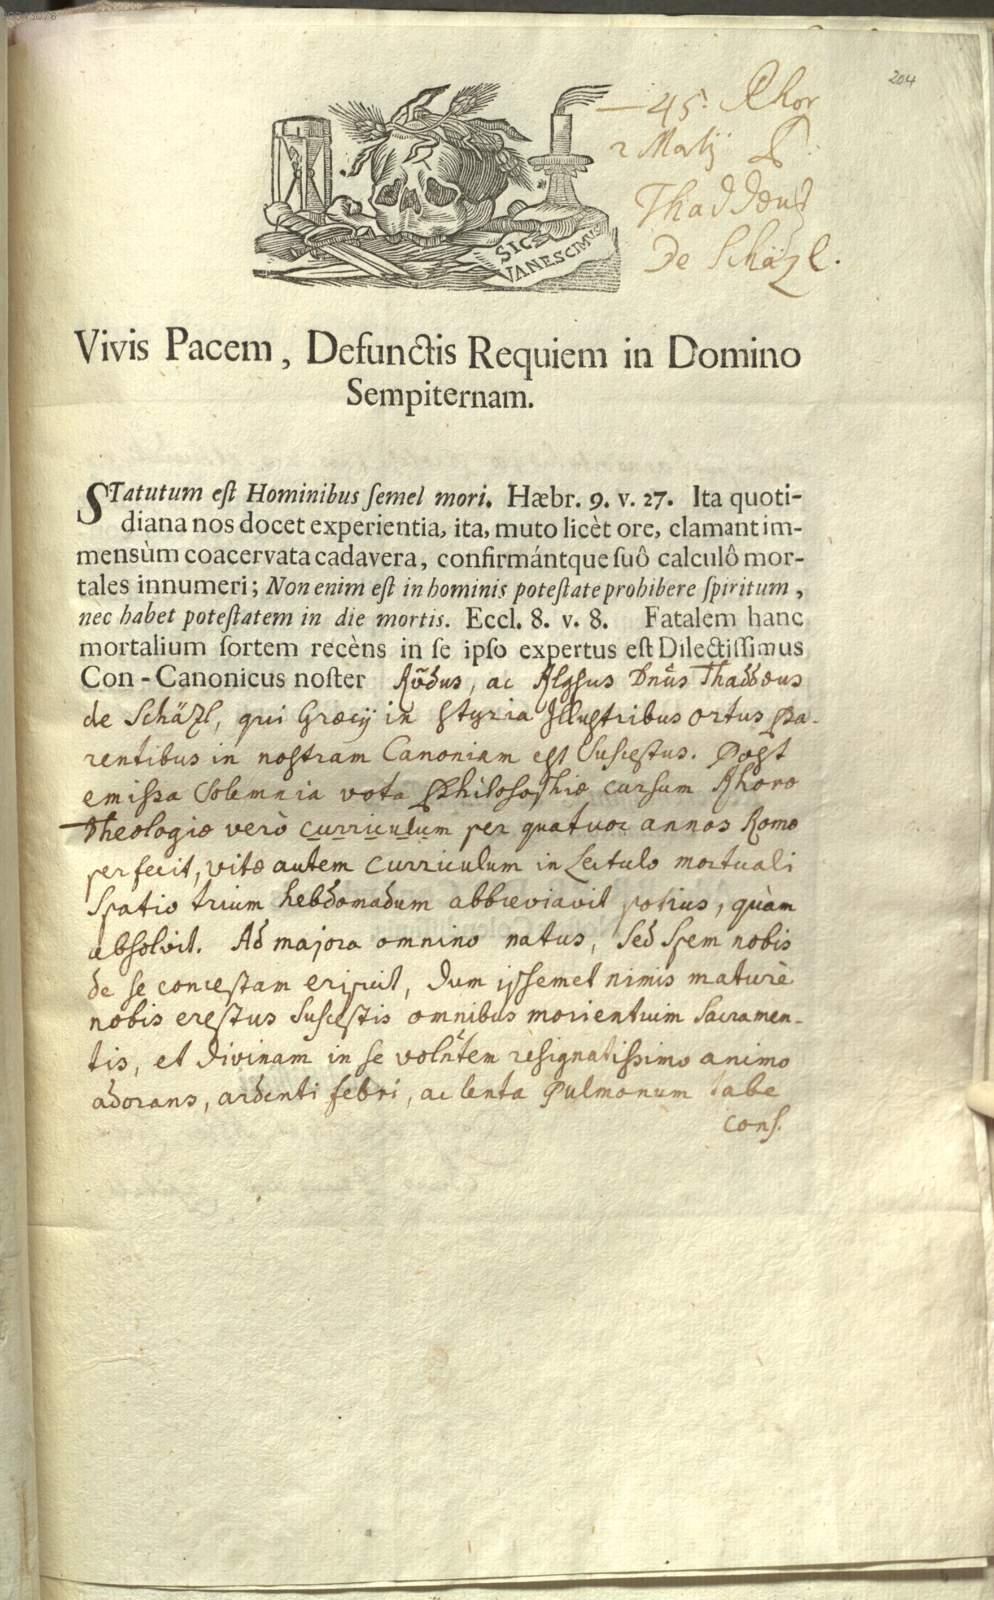 204
— 45. Rhor
2 Maij P.
Thaddæus
De Schäzl.
SIC
VANESCIMUS
Vivis Pacem, Defunctis Requiem in Domino
Sempiternam.
STatutum est Hominibus semel mori. Hæbr. 9. v. 27. Ita quoti-
diana nos docet experientia, ita, muto licèt ore, clamant im-
mensùm coacervata cadavera, confirmántque suô calculô mor-
tales innumeri; Non enim est in hominis potestate prohibere spiritum,
nec habet potestatem in die mortis. Eccl. 8. v. 8. Fatalem hanc
mortalium sortem recèns in se ipso expertus est Dilectissimus
Con-Canonicus noster Rṽdus, ac Rlgsus Dnũs Thaddæus
de Schäzl, qui Græcij in Styria Illustribus ortus Pa-
rentibus in nostram Canoniam est susceptus. Post
emissa Solemnia vota Philosophiæ cursum Rhoræ
Theologiæ verò curriculum per quatuor annos Romæ
perfecit, vitæ autem curriculum in Lectulo mortuali
Spatio trium hebdomadum abbreviavit potius, quàm
absolvit. Ad majora omnino natus, sed spem nobis
de se conceptam eripuit, dum ipsemet nimis maturè
nobis ereptus susceptis omnibus morientium Sacramen-
tis, et divinam in se volñtem resignatissimo animo
adorans, ardenti febri, ac lenta Pulmonum tabe
cons.